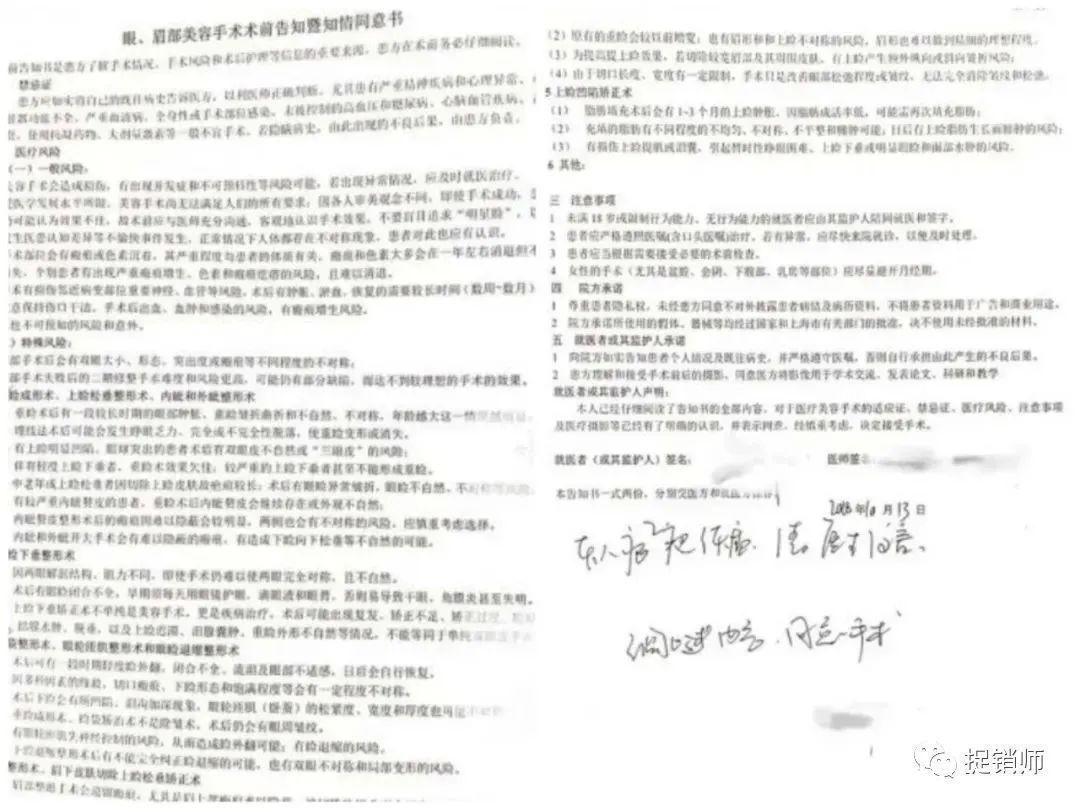 眼、眉部美容手术术前告知暨知情同意书
前告知书是患方了解手术情况、手术风险和术后护理等信息的重要来源，患方在术前务必仔细阅读。
禁忌证
患方应如实将自己的既往病史告诉医方，以利医师正确判断。尤其患有严重精神疾病和心理异常、
器功能不全、严重血液病、全身性或手术部位感染、未被控制的高血压和糖尿病、心脑血管疾病、
使用抗凝药物、大剂量激素等一般不宜手术。若隐瞒病史，由此出现的不良后果，由患方负责。
医疗风险
（一）一般风险：
美容手术会造成损伤，有出现并发症和不可预料性等风险可能，若出现异常情况，应及时就医治疗。
医学发展水平所限，美容手术尚无法满足人们的所有要求，因各人审美观念不同，即使手术成功，
仍可能认为效果不佳，故术前应与医师充分沟通，客观地认识手术效果，不要盲目追求“明星脸”，
生医患认知差异等不愉快事件发生，正常情况下人体都存在不对称现象，患者对此也应有认识。
手术部位会有瘢痕或色素沉着，其严重程度与患者的体质有关，瘢痕和色素大多会在一年左右消退但不
失，个别患者有出现严重瘢痕增生、色素和瘢痕疙瘩的风险，且难以消退。
术有损伤邻近病变部位重要神经、血管等风险，术后有肿胀、淤血，恢复的需要较长时间（数周~数月）
意保持伤口干洁，手术后出血、血肿和感染的风险，有瘢痕增生风险。
他不可预知的风险和意外。
）特殊风险：
部手术后会有双眼大小、形态、突出度或瘢痕等不同程度的不对称；
部手术失败后的二期修整手术难度和风险更高，可能仍有部分缺陷，而达不到较理想的手术的效果。
睑成形术、上睑松垂整形术、内眦和外眦整形术
重睑术后有一段较长时期的眼部肿胀、重睑皱折曲折和不自然、不对称，年龄越大这一情
埋线法术后可能会发生睁眼乏力、完全或不完全性脱落，使重睑变形或消失。
有上睑明显凹陷、眼球突出的患者术后有双眼皮不自然或“三眼皮”的风险；
伴有程度上睑下垂者，重睑术效果欠佳；较严重的上睑下垂者甚至不能形成重睑。
中老年或上睑松垂者因切除上睑皮肤故疤痕较长；术后有眼睑异常皱折，眼睑不自然、不对称等风险
有较严重内眦赘皮的患者，重睑术后内眦赘皮会继续存在或外观不自然；
内眦赘皮整形术后的瘢痕困难以隐蔽会较明显，两侧也会有不对称的风险，应慎重考虑选择。
内眦和外眦开大手术会有难以隐蔽的瘢痕，有造成下睑向下松垂等不自然的可能。
睑下垂整形术
因两眼解剖结构、肌力不同，即使手术仍难以使两眼完全对称，且不自然。
术后有眼睑闭合不全，早期须每天用眼镜护眼、滴眼液和眼膏，否则易导致干眼、角膜炎甚至失明。
上睑下垂矫正术不单纯是美容手术，更是疾病治疗，术后可能出现复发、矫正不足、矫正过度、
结膜水肿、脱垂，以及上睑迟滞、泪腺囊肿、重睑外形不自然等情况，不能等同于单纯
袋整形术、眼轮匝肌整形术和眼睑退缩整形术
术后可有一段时期轻度睑外翻、闭合不全、流泪及眼部不适感，日后会自行恢复。
因多种因素的缘故，切口瘢痕、下睑形态和饱满程度等会有一定程度不对称。
术后下睑会有所凹陷、泪沟加深现象，眼轮匝肌（卧蚕）的松紧度、宽度和厚度也可能不
重睑成形术、睑袋矫治术不是除皱术，术后仍会有眼周皱纹。
有眼轮匝肌失神经控制的风险，从而造成睑外翻可能；有睑退缩的风险。
下睑退缩整形术后有不能完全纠正睑退缩的可能，也有双眼不对称和局部变形的风险。
整形术、眉下皮肤切除上睑松垂矫正术
眉部整形手术会遗留瘢痕，尤其是眉上
（2）原有的重睑会较以前增宽；也有眉形和和上睑不对称的风险，眉形也难以做到精细的理想程度。
（3）为提高提上睑效果，若切除较宽眉部及其周围皮肤，有上睑产生额外纵向或斜向皱折风险。
（4）由于切口长度、宽度有一定限制，手术只是改善眼部松弛程度或皱纹，无法完全消除皱纹和松弛。
5 上睑凹陷矫正术
（1） 脂肪填充术后会有1-3个月的上睑肿胀，因脂肪成活率低，可能需再次填充脂肪；
（2） 充填的脂肪有不同程度的不均匀、不对称、不平整和臃肿可能；日后有上睑脂肪生长而臃肿的风险；
（3） 有损伤上睑提肌或泪囊，引起暂时性睁眼困难、上睑下垂或明显眼睑和面部水肿的风险。
6 其他：
三 注意事项
1 未满18岁或限制行为能力、无行为能力的就医者应由其监护人陪同就医和签字。
2 患者应严格遵照医嘱(含口头医嘱)治疗，若有异常，应尽快来院就诊，以便及时处理。
3 患者应当根据需要接受必要的术前检查。
4 女性的手术（尤其是盆腔、会阴、下腹部、乳房等部位）应尽量避开月经期。
四 院方承诺
1 尊重患者隐私权，未经患方同意不对外披露患者病情及病历资料，不将患者资料用于广告和商业用途。
2 院方承诺所使用的假体、器械等均经过国家和上海市有关部门的批准，决不使用未经批准的材料。
五 就医者或其监护人承诺
1 向院方如实告知患者个人情况及既往病史，并严格遵守医嘱，否则自行承担由此产生的不良后果。
2 患方理解和接受手术前后的摄影，同意医方将影像用于学术交流、发表论文、科研和教学
就医者或其监护人声明：
本人已经仔细阅读了告知书的全部内容，对于医疗美容手术的适应证、禁忌证、医疗风险、注意事项
及医疗摄影等已经有了明确的认识，并表示同意，经慎重考虑，决定接受手术。
就医者（或其监护人）签名： 医师签名
本告知书一式两份，分别交医方和就医方保存
年10月13日
同意手术
捉销师